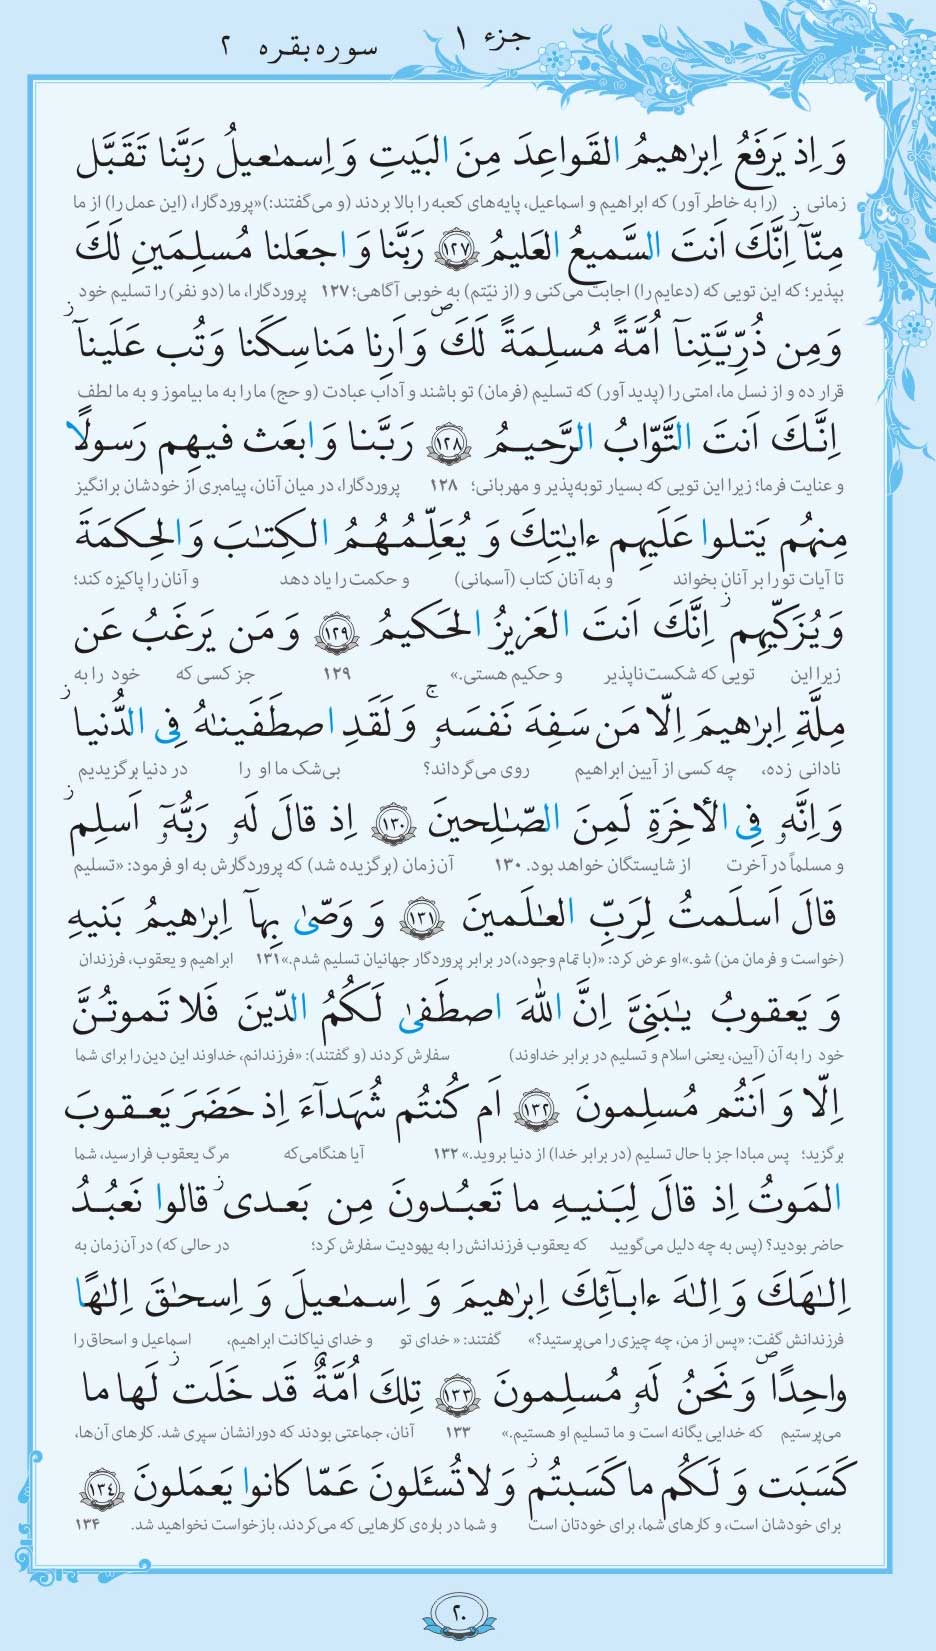 جزء ۱
سوره بقره ۲
وَ اِذ یَرفَعُ اِبرٰهیمُ القَواعِدَ مِنَ البَیتِ وَ اِسمٰعیلُ رَبَّنا تَقَبَّل
زمانی (را به خاطر آور) که ابراهیم و اسماعیل، پایه‌های کعبه را بالا بردند (و می‌گفتند:)«پروردگارا، (این عمل را) از ما
مِنّآ اِنَّکَ اَنتَ السَّمیعُ العَلیمُ ۱۲۷ رَبَّنا وَ اجعَلنا مُسلِمَینِ لَکَ
بپذیر؛ که این تویی که (دعایم را) اجابت می‌کنی و (از نیّتم) به خوبی آگاهی؛ ۱۲۷ پروردگارا، ما (دو نفر) را تسلیم خود
وَ مِن ذُرِّیَّتِنآ اُمَّةً مُسلِمَةً لَکَ ۖ وَ اَرِنا مَناسِکَنا وَ تُب عَلَینآ ز
قرار ده و از نسل ما، امتی را (پدید آور) که تسلیم (فرمان) تو باشند و آداب عبادت (و حج) ما را به ما بیاموز و به ما لطف
اِنَّکَ اَنتَ التَّوّابُ الرَّحیمُ ۱۲۸ رَبَّنا وَ ابعَث فیهِم رَسولًا
و عنایت فرما؛ زیرا این تویی که بسیار توبه‌پذیر و مهربانی؛ ۱۲۸ پروردگارا، در میان آنان، پیامبری از خودشان برانگیز
مِنهُم یَتلوا عَلَیهِم ءایٰتِکَ وَ یُعَلِّمُهُمُ الکِتٰبَ وَ الحِکمَةَ
تا آیات تو را بر آنان بخواند و به آنان کتاب (آسمانی) و حکمت را یاد دهد و آنان را پاکیزه کند؛
وَ یُزَکّیهِم ز اِنَّکَ اَنتَ العَزیزُ الحَکیمُ ۱۲۹ وَ مَن یَرغَبُ عَن
زیرا این تویی که شکست‌ناپذیر و حکیم هستی.» ۱۲۹ جز کسی که خود را به
مِلَّةِ اِبرٰهیمَ اِلّا مَن سَفِهَ نَفسَهٗ ۚ وَ لَقَدِ اصطَفَینٰهُ فِی الدُّنیا ز
نادانی زده، چه کسی از آیین ابراهیم روی می‌گرداند؟ بی‌شک ما او را در دنیا برگزیدیم
وَ اِنَّهٗ فِی الأٰخِرَةِ لَمِنَ الصّٰلِحینَ ۱۳۰ اِذ قالَ لَهٗ رَبُّهٗٓ اَسلِم ز
و مسلماً در آخرت از شایستگان خواهد بود. ۱۳۰ آن زمان (برگزیده شد) که پروردگارش به او فرمود: «تسلیم
قالَ اَسلَمتُ لِرَبِّ العٰلَمینَ ۱۳۱ وَ وَصّیٰ بِهآ اِبرٰهیمُ بَنیهِ
(خواست و فرمان من) شو.»او عرض کرد: «(با تمام وجود،)در برابر پروردگار جهانیان تسلیم شدم.»۱۳۱ ابراهیم و یعقوب، فرزندان
وَ یَعقوبُ یٰبَنِیَّ اِنَّ اللّٰهَ اصطَفیٰ لَکُمُ الدّینَ فَلا تَموتُنَّ
خود را به آن (آیین، یعنی اسلام و تسلیم در برابر خداوند) سفارش کردند (و گفتند): «فرزندانم، خداوند این دین را برای شما
اِلّا وَ اَنتُم مُسلِمونَ ۱۳۲ اَم کُنتُم شُهَدآءَ اِذ حَضَرَ یَعقوبَ
برگزید؛ پس مبادا جز با حال تسلیم (در برابر خدا) از دنیا بروید.» ۱۳۲ آیا هنگامی‌که مرگ یعقوب فرارسید، شما
المَوتُ اِذ قالَ لِبَنیهِ ما تَعبُدونَ مِن بَعدی ز قالوا نَعبُدُ
حاضر بودید؟ (پس به چه دلیل می‌گویید که یعقوب فرزندانش را به یهودیت سفارش کرد؛ در حالی که) در آن زمان به
اِلٰهَکَ وَ اِلٰهَ ءابآئِکَ اِبرٰهیمَ وَ اِسمٰعیلَ وَ اِسحٰقَ اِلٰهًا
فرزندانش گفت: «پس از من، چه چیزی را می‌پرستید؟» گفتند: «خدای تو و خدای نیاکانت ابراهیم، اسماعیل و اسحاق را
واحِدًا ۖ وَ نَحنُ لَهٗ مُسلِمونَ ۱۳۳ تِلکَ اُمَّةٌ قَد خَلَت ز لَها ما
می‌پرستیم که خدایی یگانه است و ما تسلیم او هستیم.» ۱۳۳ آنان، جماعتی بودند که دورانشان سپری شد. کارهای آن‌ها،
کَسَبَت وَ لَکُم ما کَسَبتُم ز وَ لا تُسـَٔلونَ عَمّا کانوا یَعمَلونَ ۱۳۴
برای خودشان است، و کارهای شما، برای خودتان است و شما در باره‌ی کارهایی که می‌کردند، بازخواست نخواهید شد. ۱۳۴
۲۰